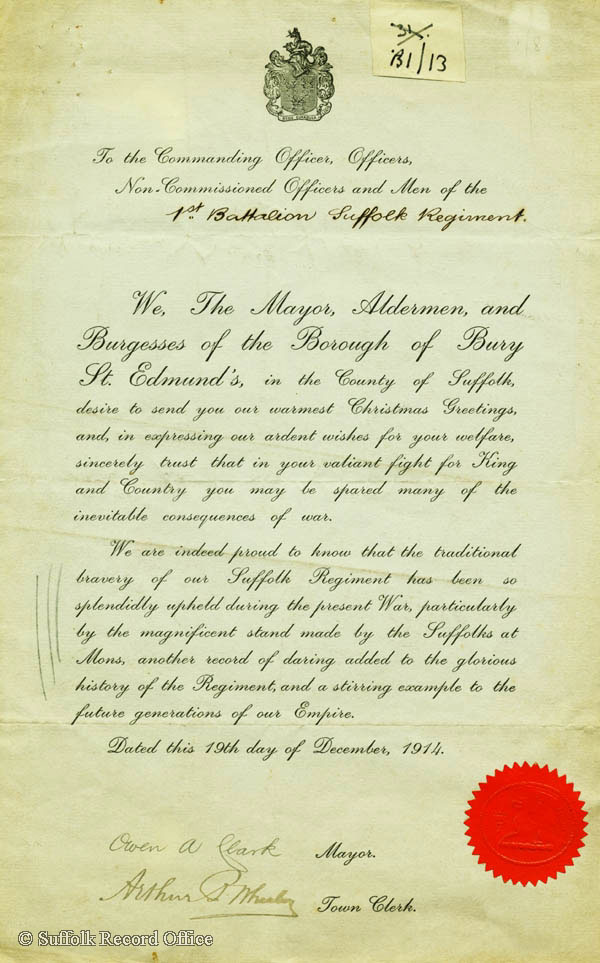 B1/13
To the Commanding Officer, Officers,
Non-Commissioned Officers and Men of the
1st Battalion Suffolk Regiment.
We, The Mayor, Aldermen, and
Burgesses of the Borough of Bury
St. Edmund's, in the County of Suffolk,
desire to send you our warmest Christmas Greetings,
and, in expressing our ardent wishes for your welfare,
sincerely trust that in your valiant fight for King
and Country you may be spared many of the
inevitable consequences of war.
We are indeed proud to know that the traditional
bravery of our Suffolk Regiment has been so
splendidly upheld during the present War, particularly
by the magnificent stand made by the Suffolks at
Mons, another record of daring added to the glorious
history of the Regiment, and a stirring example to the
future generations of our Empire.
Dated this 19th day of December, 1914.
Owen A Clark Mayor.
Arthur Town Clerk.
© Suffolk Record Office